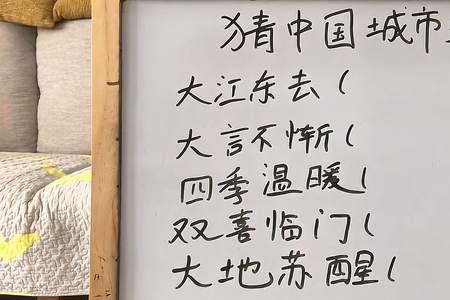 猜中国城市
大江东去(
大言不惭(
四季温暖(
双喜临门(
大地苏醒(